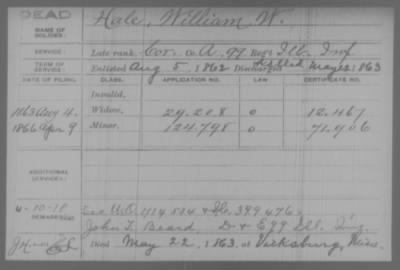 DEAD
NAME OF SOLDIER: Hale, William W.
SERVICE: Late rank, Cor. Co. A, 99 Reg't Ill. Inf
TERM OF SERVICE: Enlisted Aug 5, 1862 Discharged Killed May 22, 1863
DATE OF FILING. CLASS. APPLICATION NO. LAW CERTIFICATE NO.
Invalid,
1863 Aug 4. Widow, 29.208 0 12.467
1866 Apr 9 Minor, 124.798 0 71.906
ADDITIONAL SERVICES:
4-10-18 See W.O. 1114584 & 399476
REMARKS: John T. Beard, D + E 99 Ill. Inf.
Died May 22, 1863, at Vicksburg, Miss.